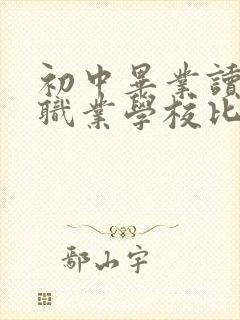 初中畢業讀
職業學校比
鄢山宇